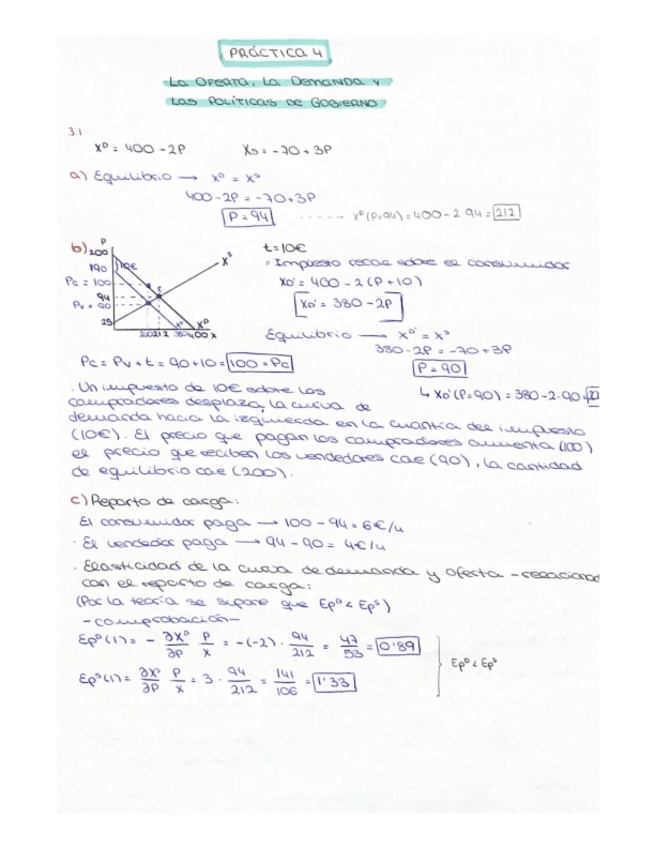 PRÁCTICA 4
La Oferta, la Demanda y
las Políticas de Gobierno
3.1
X^D = 400 - 2P     X_S = -70 + 3P
a) Equilibrio → X^D = X^S
400 - 2P = -70 + 3P
P = 94 ----→ X^D (P=94) = 400 - 2·94 = 212
b) P
200
190
10€
Pc = 100
94
Pv = 90
25
E
X^S
X^D' X^D
200 212 380 400 X
t = 10€
· Impuesto recae sobre el consumidor
XD' = 400 - 2(P + 10)
XD' = 380 - 2P
Equilibrio → X^D' = X^S
380 - 2P = -70 + 3P
P = 90
↳ XD' (P=90) = 380 - 2·90 =
Pc = Pv + t = 90 + 10 = 100 = Pc
· Un impuesto de 10€ sobre los
compradores desplaza la curva de
demanda hacia la izquierda en la cuantía del impuesto
(10€). El precio que pagan los compradores aumenta (100)
el precio que reciben los vendedores cae (90), la cantidad
de equilibrio cae (200).
c) Reparto de carga:
El consumidor paga → 100 - 94 = 6€/u
· El vendedor paga → 94 - 90 = 4€/u
· Elasticidad de la curva de demanda y oferta - relacionad
con el reparto de carga:
(Por la teoría se supone que Ep^D < Ep^S)
- comprobación -
Ep^D (1) = - ∂X^D/∂P P/X = -(-2) · 94/212 = 47/53 = 0'89
Ep^D < Ep^S
Ep^S (1) = ∂X^S/∂P P/X = 3 · 94/212 = 141/106 = 1'33